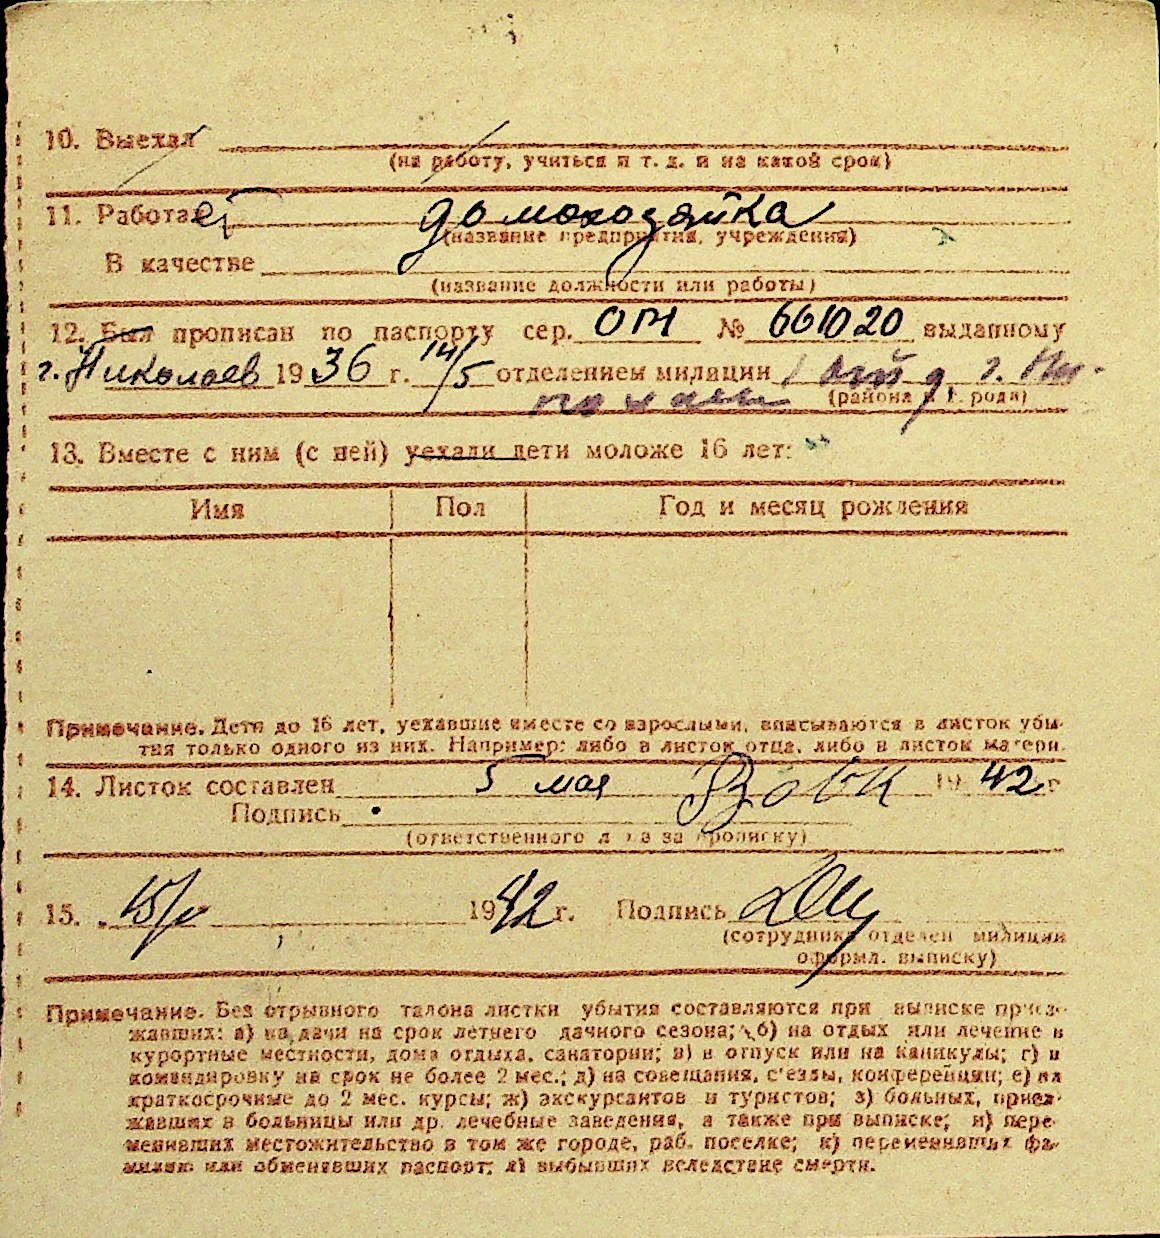 10. Выехал
(на работу, учиться и т. д. и на какой срок)
11. Работает домохозяйка
(название предприятия, учреждения)
В качестве
(название должности или работы)
12. Был прописан по паспорту сер. № 661020 выданному
г. Николаев 1936 г. 14/5 отделением милиции 1 г.
(района и города)
13. Вместе с ним (с ней) уехали дети моложе 16 лет:
Имя Пол Год и месяц рождения
Примечание. Дети до 16 лет, уехавшие вместе со взрослыми, вписываются в листок убы-
тия только одного из них. Например: либо в листок отца, либо в листок матери.
14. Листок составлен 5 мая 1942 г
Подпись
(ответственного лица за прописку)
15. 1942 г. Подпись
(сотрудника отделен милиции
оформл. выписку)
Примечание. Без отрывного талона листки убытия составляются при выписке приез-
жавших: а) на дачи на срок летнего дачного сезона; б) на отдых или лечение в
курортные местности, дома отдыха, санатории; в) в отпуск или на каникулы; г) в
командировку на срок не более 2 мес.; д) на совещания, с'езды, конференции; е) на
краткосрочные до 2 мес. курсы; ж) экскурсантов и туристов; з) больных, приез-
жавших в больницы или др. лечебные заведения, а также при выписке; и) пере-
менивших местожительство в том же городе, раб. поселке; к) переменивших фа-
милию или обменявших паспорт; л) выбывших вследствие смерти.